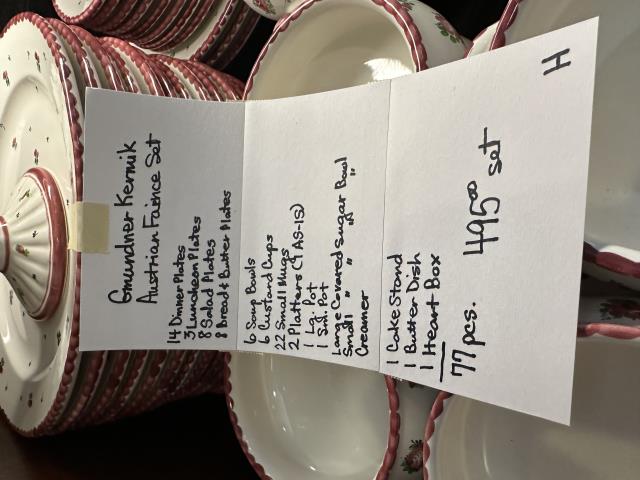 Gmundner Kermik
Austrian Faince Set
14 Dinner Plates
3 Luncheon Plates
8 Salad Plates
8 Bread & Butter Plates
6 Soup Bowls
6 Custard Cups
22 Small Mugs
2 Platters (1 AS-IS)
1 Lg. Pot
1 Sm. Pot
Large Covered Sugar Bowl
Small " " "
Creamer
1 Cake Stand
1 Butter Dish
1 Heart Box
77 pcs. 495.00 set
H